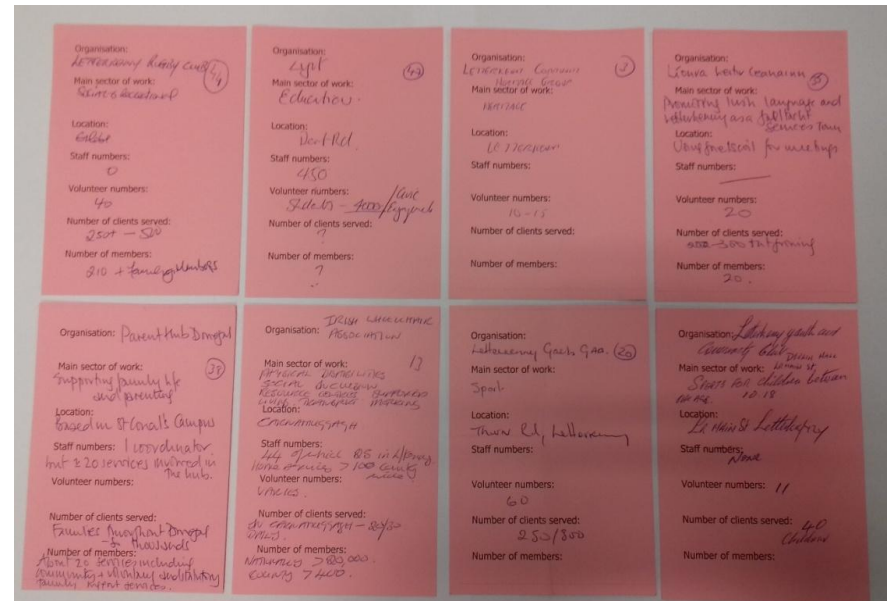 Organisation:
LETTERKENNY RUGBY CLUB
44
Main sector of work:
Location:
Staff numbers:
0
Volunteer numbers:
40
Number of clients served:
250+ - 500
Number of members:
210 + family members
Organisation:
Lyit
Main sector of work:
Education.
Location:
Port Rd.
Staff numbers:
450
Volunteer numbers:
Students - 4000/Civic
Number of clients served:
?
Number of members:
?
Organisation:
LETTERKENNY COMMUNITY
HERITAGE GROUP
Main sector of work:
HERITAGE
Location:
LETTERKENNY
Staff numbers:
Volunteer numbers:
10-15
Number of clients served:
Number of members:
Organisation:
Líonra Leitir Ceanainn
35
Main sector of work:
Promoting Irish language and
Letterkenny as a
Services Town
Location:
for meetings
Staff numbers:
Volunteer numbers:
20
Number of clients served:
300
Number of members:
20.
Organisation: Parent Hub Donegal
38
Main sector of work:
Supporting family life
and parenting
Location:
based in St Conal's Campus
Staff numbers: 1 coordinator
but ± 20 services involved in
the hub.
Volunteer numbers:
Number of clients served:
Families throughout Donegal
- thousands
Number of members:
About 20 services including
community & voluntary and statutory
family support services.
IRISH WHEELCHAIR
Organisation: ASSOCIATION
13
Main sector of work:
PHYSICAL DISABILITIES
SOCIAL INCLUSION
Location:
Staff numbers:
Volunteer numbers:
VARIES.
Number of clients served:
Number of members:
NATIONALLY > 20,000.
COUNTY > 400.
Organisation:
Letterkenny Gaels GAA.
20
Main sector of work:
Sport
Location:
Thorn Rd, Letterkenny
Staff numbers:
Volunteer numbers:
60
Number of clients served:
250/300
Number of members:
Organisation: Letterkenny youth and
Main sector of work:
Sports for children between
10-18
Location:
Lr Main St Letterkenny
Staff numbers:
None
Volunteer numbers: 11
Number of clients served: 40
Children
Number of members: